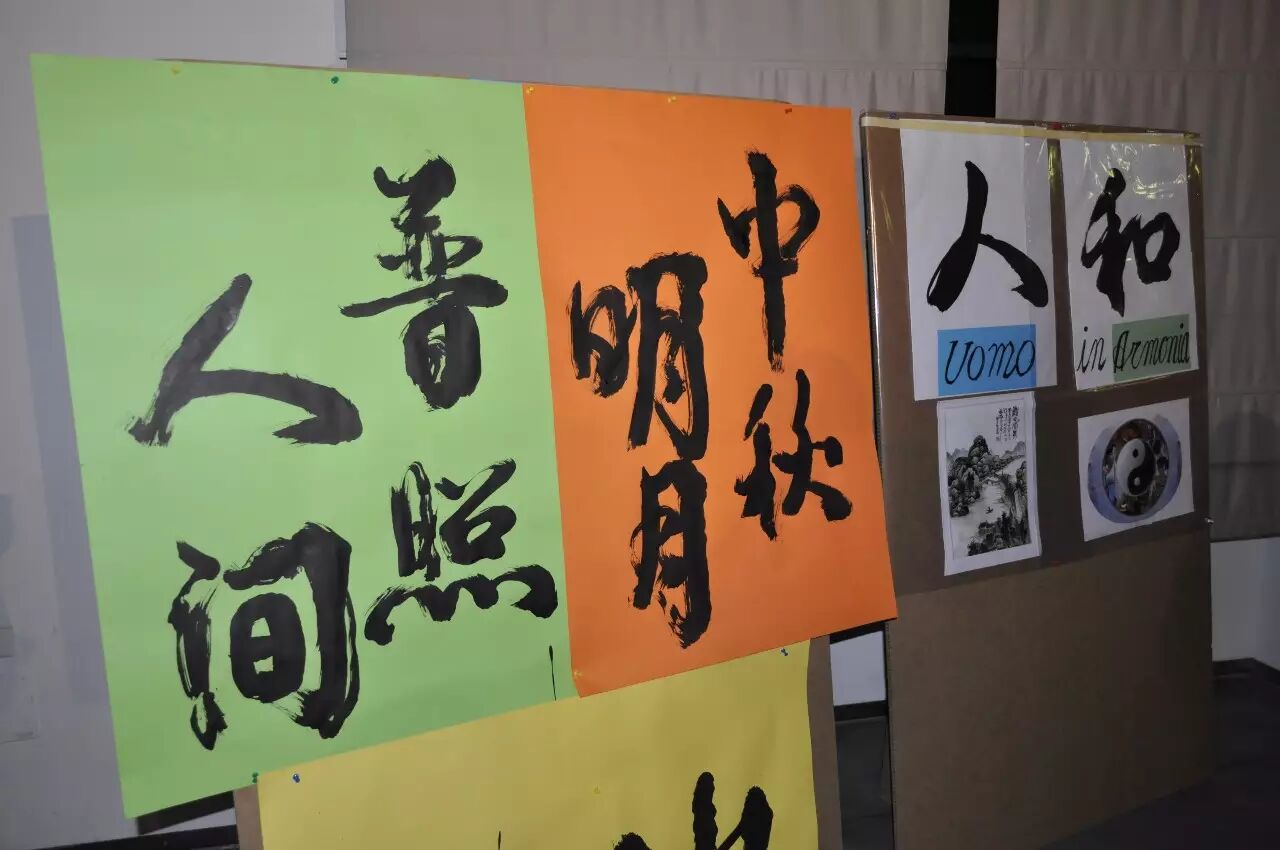 中秋
明月
普照
人间
人和
Uomo in Armonia